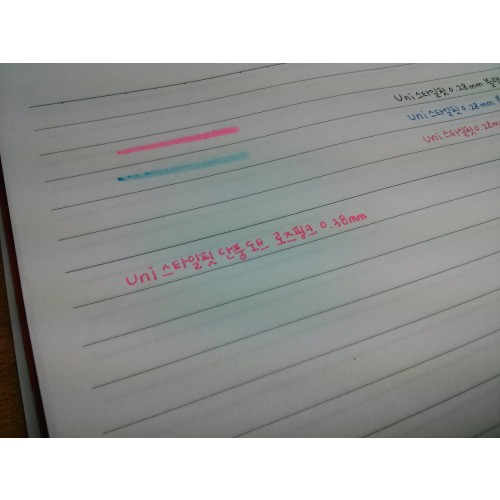 Uni 스타일핏 0.28mm
Uni 스타일핏 0.28mm
Uni 스타일핏 0.28mm
Uni 스타일핏 단풍도트 로즈핑크 0.38mm